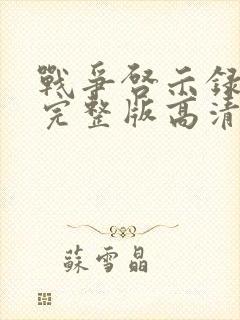 戰爭啓示录
完整版高清
蘇雪晶